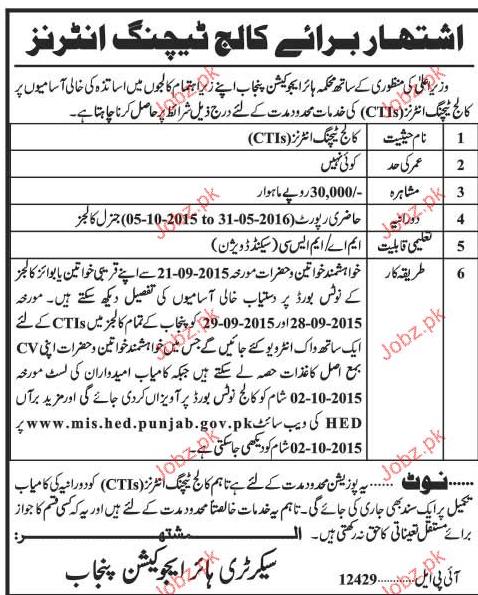 اشتہار برائے کالج ٹیچنگ انٹرنز
وزیراعلیٰ کی منظوری کے ساتھ محکمہ ہائر ایجوکیشن پنجاب اپنے زیر اہتمام کالجوں میں اساتذہ کی خالی آسامیوں پر
کالج ٹیچنگ انٹرنز (CTIs) کی خدمات محدود مدت کے لئے درج ذیل شرائط پر حاصل کرنا چاہتا ہے۔
1 نام حیثیت کالج ٹیچنگ انٹرنز (CTIs)
2 عمر کی حد کوئی نہیں
3 مشاہرہ 30,000/- روپے ماہوار
4 دورانیہ حاضری رپورٹ (05-10-2015 to 31-05-2016) جنرل کالجز
5 تعلیمی قابلیت ایم اے/ایم ایس سی (سیکنڈ ڈویژن)
6 طریقہ کار خواہشمند خواتین و حضرات مورخہ 21-09-2015 سے اپنے قریبی خواتین یا بوائز کالجز
کے نوٹس بورڈ پر دستیاب خالی آسامیوں کی تفصیل دیکھ سکتے ہیں۔ مورخہ
28-09-2015 اور 29-09-2015 کو پنجاب کے تمام کالجز میں CTIs کے لئے
ایک ساتھ واک انٹرویو کئے جائیں گے جس میں خواہشمند خواتین و حضرات اپنی CV
بمع اصل کاغذات حصہ لے سکتے ہیں جبکہ کامیاب امیدواران کی لسٹ مورخہ
02-10-2015 شام کو کالج نوٹس بورڈ پر آویزاں کر دی جائے گی اور مزید برآں
HED کی ویب سائٹ www.mis.hed.punjab.gov.pk پر
02-10-2015 شام کو دیکھی جا سکتی ہے۔
نوٹ ...... یہ پوزیشن محدود مدت کے لئے ہے تاہم کالج ٹیچنگ انٹرنز (CTIs) کو دورانیہ کی کامیاب
تکمیل پر ایک سند بھی جاری کی جائے گی۔ تاہم یہ خدمات خالصتاً محدود مدت کے لئے ہیں اور یہ کہ کسی قسم کا جواز
برائے مستقل تعیناتی کا حق نہ رکھتی ہیں۔ المشتہر:
سیکرٹری ہائر ایجوکیشن پنجاب
آئی پی ایل............12429
Jobz.pk
Jobz.pk
Jobz.pk
Jobz.pk
Jobz.pk
Jobz.pk
Jobz.pk
Jobz.pk